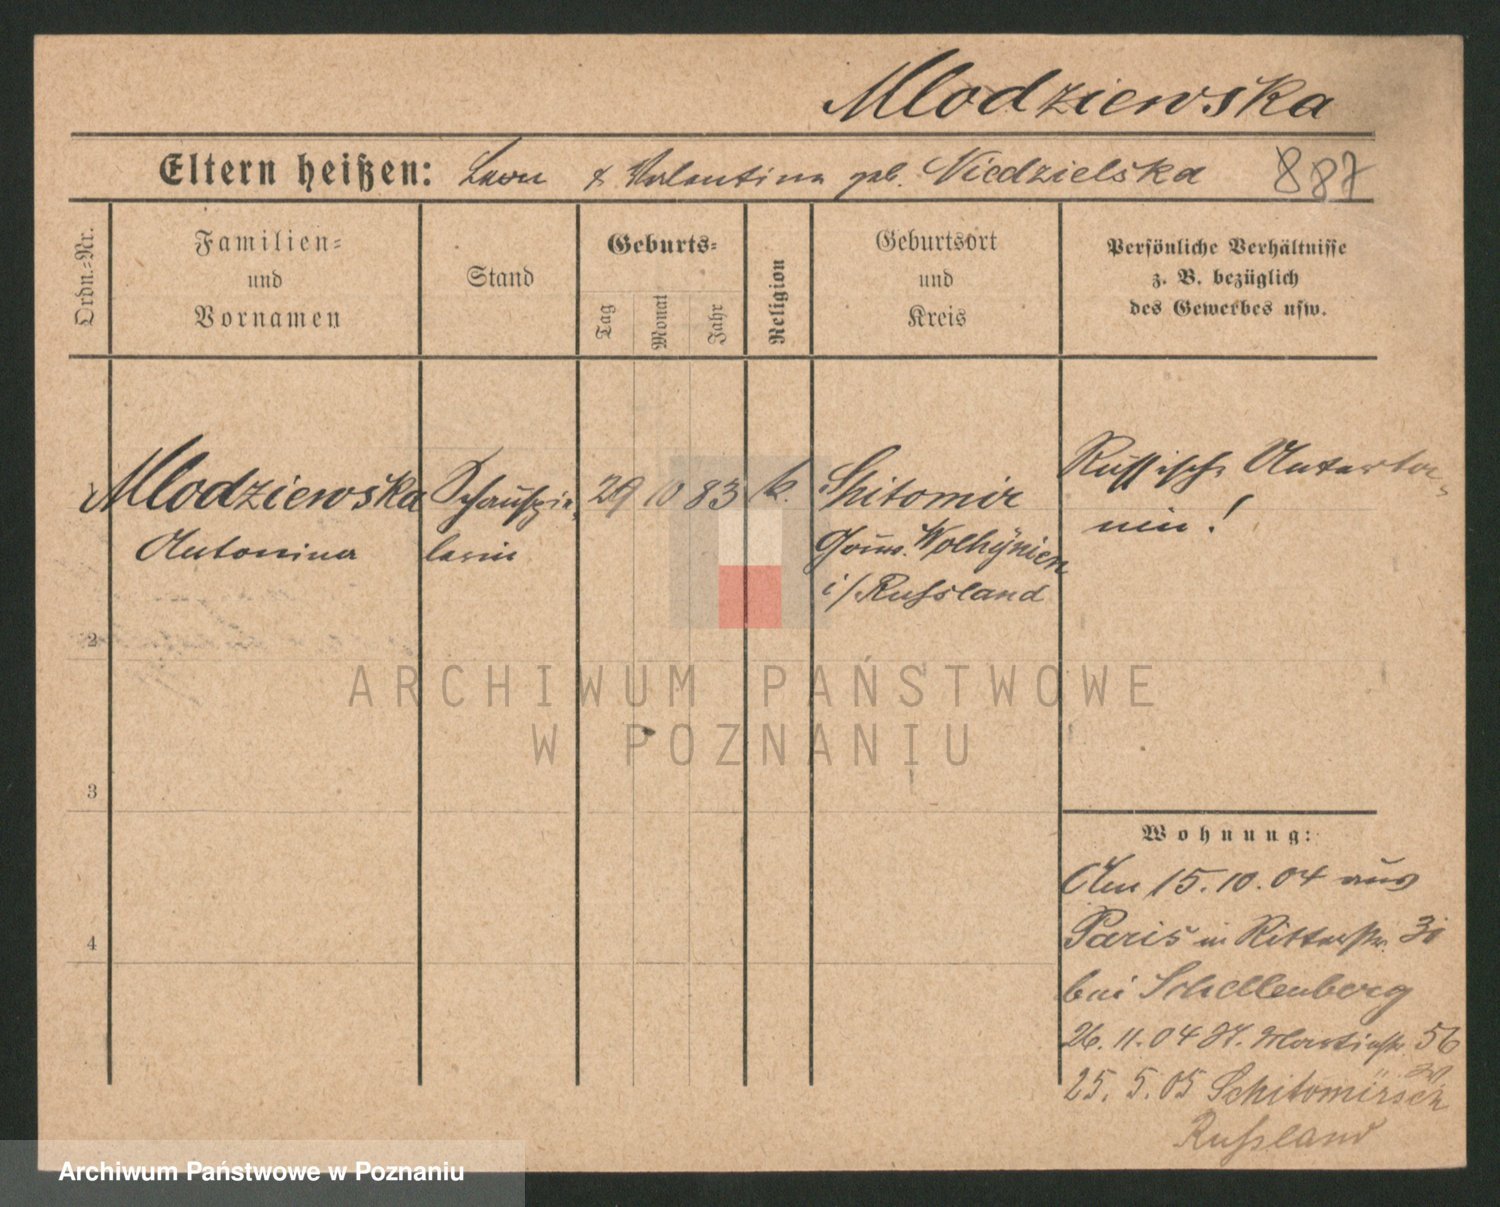 Mlodziewska
Eltern heißen: Leon & Valentina geb. Niedzielska 887
Ordn.-Nr.
Familien-
und
Vornamen
Stand
Geburts-
Tag
Monat
Jahr
Religion
Geburtsort
und
Kreis
Persönliche Verhältnisse
z. B. bezüglich
des Gewerbes usw.
Mlodziewska
Antonina
Schauspie-
lerin
29 10 83 k.
Shitomir
Gouv. Wolhynien
i/Russland
Russische Unterta-
nin!
2
3
4
ARCHIWUM PAŃSTWOWE
W POZNANIU
Wohnung:
Am 15.10.04 aus
Paris in Ritterstr.
bei Schellenberg
26.11.04 St. Martinstr 56
25. 5. 05 Schitomir
Russland
Archiwum Państwowe w Poznaniu